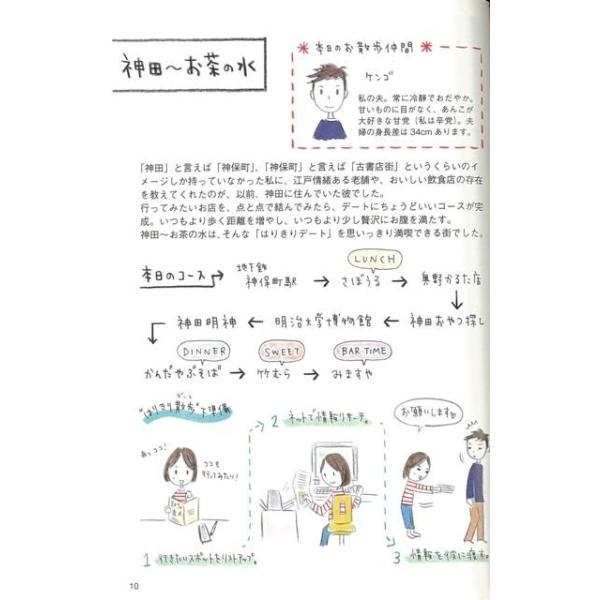 神田〜お茶の水
本日のお散歩仲間
ケンゴ
私の夫。常に冷静でおだやか。
甘いものに目がなく、あんこが
大好きな甘党（私は辛党）。夫
婦の身長差は34cmあります。
「神田」と言えば「神保町」、「神保町」と言えば「古書店街」というくらいのイ
メージしか持っていなかった私に、江戸情緒ある老舗や、おいしい飲食店の存在
を教えてくれたのが、以前、神田に住んでいた彼でした。
行ってみたいお店を、点と点で結んでみたら、デートにちょうどいいコースが完
成。いつもより歩く距離を増やし、いつもより少し贅沢にお腹を満たす。
神田〜お茶の水は、そんな「はりきりデート」を思いっきり満喫できる街でした。
本日のコース
地下鉄
神保町駅
LUNCH
さぼうる
奥野かるた店
神田おやつ探し
明治大学博物館
神田明神
DINNER
かんだやぶそば
SWEET
竹むら
BAR TIME
みますや
"はりきり散歩"下準備
デート
あっココ!
ココも
行ってみたい!
1 行きたいスポットをリストアップ。
2 ネットで情報リサーチ。
お願いします
3 情報を彼に渡す。
10